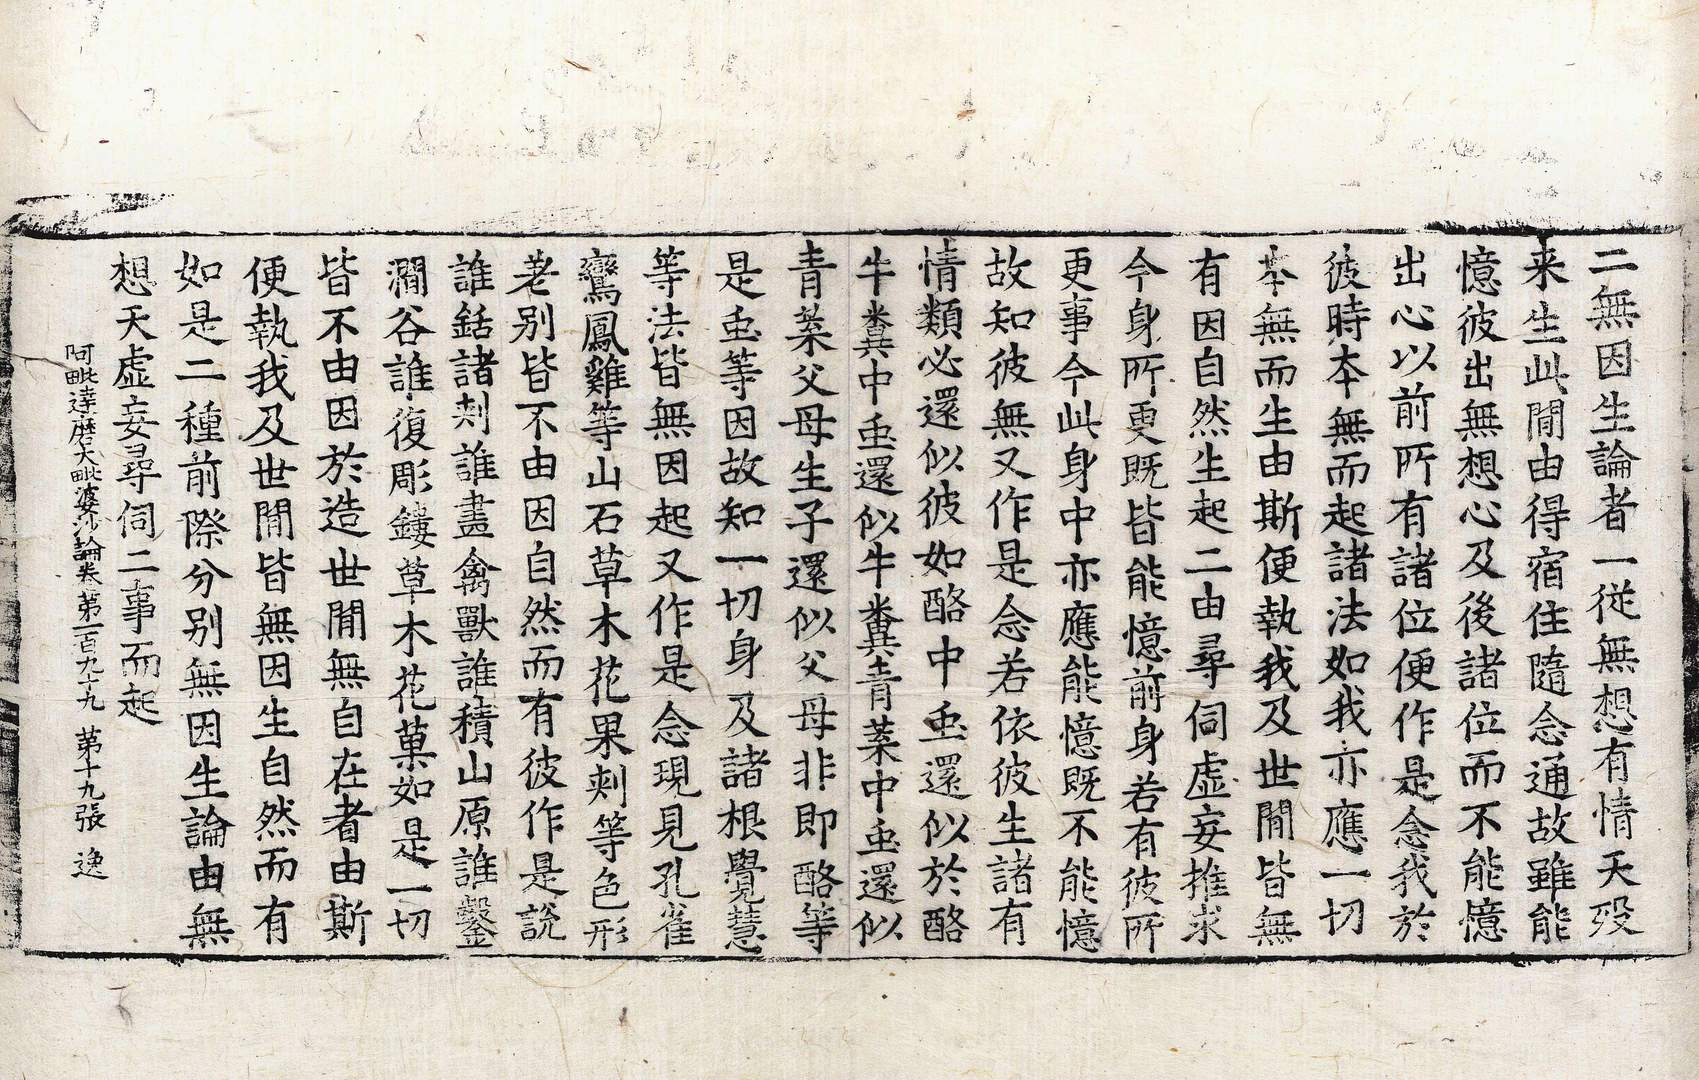 二無因生論者一從無想有情天歿
来生此閒由得宿住隨念通故雖能
憶彼出無想心及後諸位而不能憶
出心以前所有諸位便作是念我於
彼時本無而起諸法如我亦應一切
本無而生由斯便執我及世閒皆無
有因自然生起二由尋伺虛妄推求
今身所更既皆能憶前身若有彼所
更事今此身中亦應能憶既不能憶
故知彼無又作是念若依彼生諸有
情類必還似彼如酪中䖝還似於酪
牛糞中䖝還似牛糞青葉中䖝還似
青葉父母生子還似父母非即酪等
是䖝等因故知一切身及諸根覺慧
等法皆無因起又作是念現見孔雀
鸞鳳雞等山石草木花果刺等色形
差別皆不由因自然而有彼作是說
誰銛諸刺誰畫禽獸誰積山原誰鑿
澗谷誰復彫鏤草木花菓如是一切
皆不由因於造世閒無自在者由斯
便執我及世閒皆無因生自然而有
如是二種前際分別無因生論由無
想天虛妄尋伺二事而起
阿毗達磨大毗婆沙論卷第一百九十九 第十九張 逸